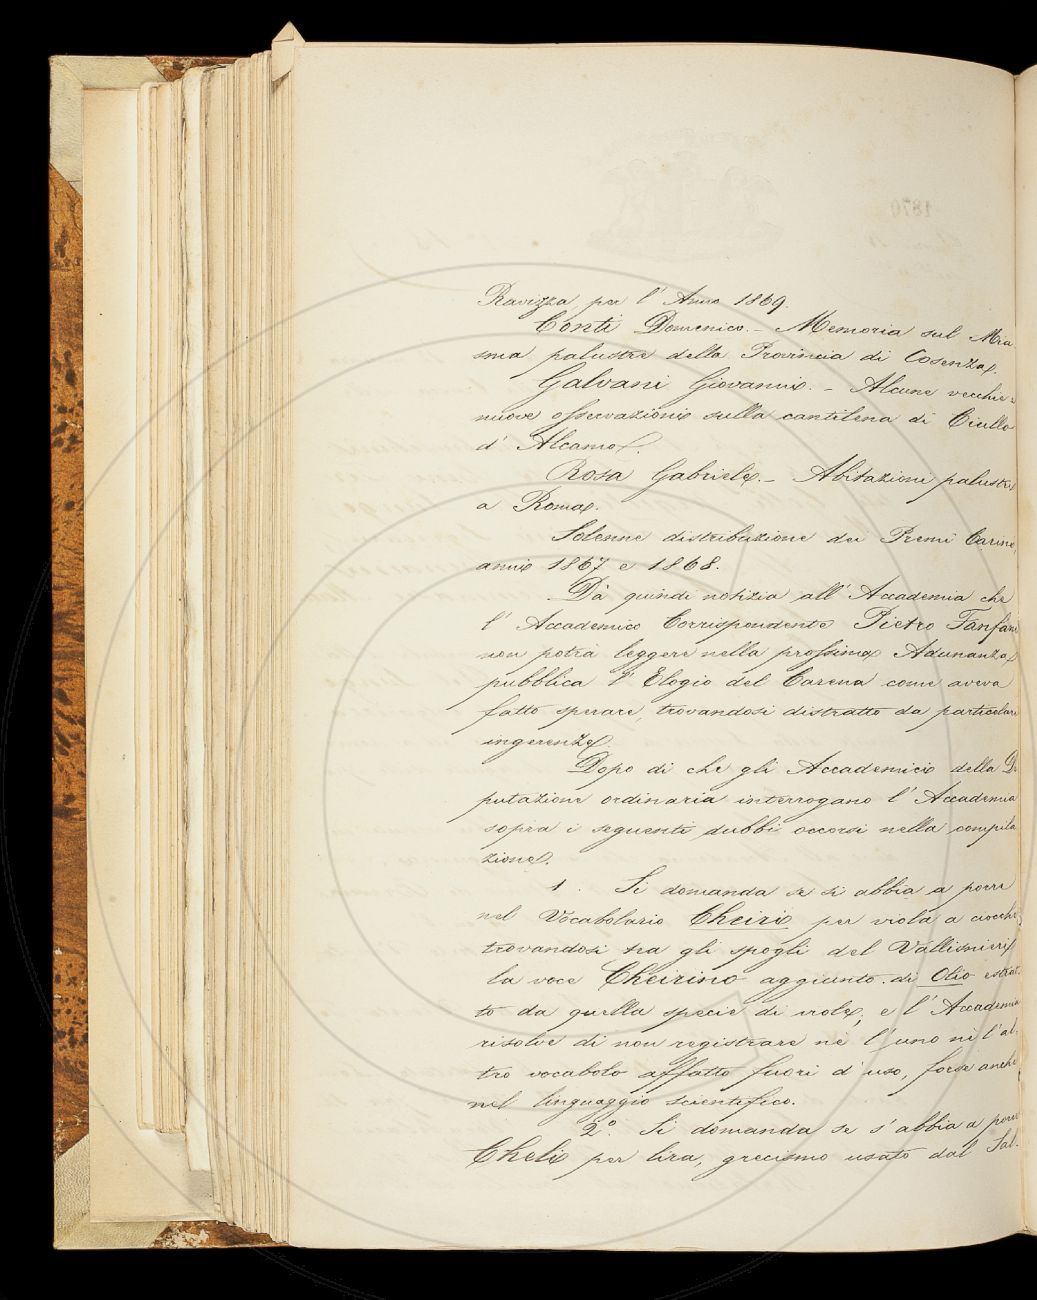 Ravizza, per l' Anno 1869.
Conti Domenico. – Memoria sul Mia
sma palustre della Provincia di Cosenza.
Galvani Giovanni. – Alcune vecchie e
nuove osservazioni sulla cantilena di Ciullo
d' Alcamo.
Rosa Gabriele. – Abitazioni palustri
a Roma.
Solenne distribuzione dei Premi Carina,
anni 1867 e 1868.
Dà quindi notizia all' Accademia che
l' Accademico Corrispondente Pietro Fanfani
non potrà leggere nella prossima Adunanza
pubblica l' Elogio del Carena come aveva
fatto sperare, trovandosi distratto da particolari
ingerenze.
Dopo di che gli Accademici della De
putazione ordinaria interrogano l' Accademia
sopra i seguenti dubbi occorsi nella compila
zione.
1. Si domanda se si abbia a porre
nel Vocabolario Cheiri per viola a ciocche
trovandosi tra gli spogli del Vallisnieri
la voce Cheirino aggiunto di Olio estrat
to da quella specie di viole; e l' Accademia
risolve di non registrare nè l' uno nè l' al-
tro vocabolo affatto fuori d' uso, forse anche
nel linguaggio scientifico.
2º. Si domanda se s' abbia a porre
Cheli per lira, grecismo usato dal Sal-
1870